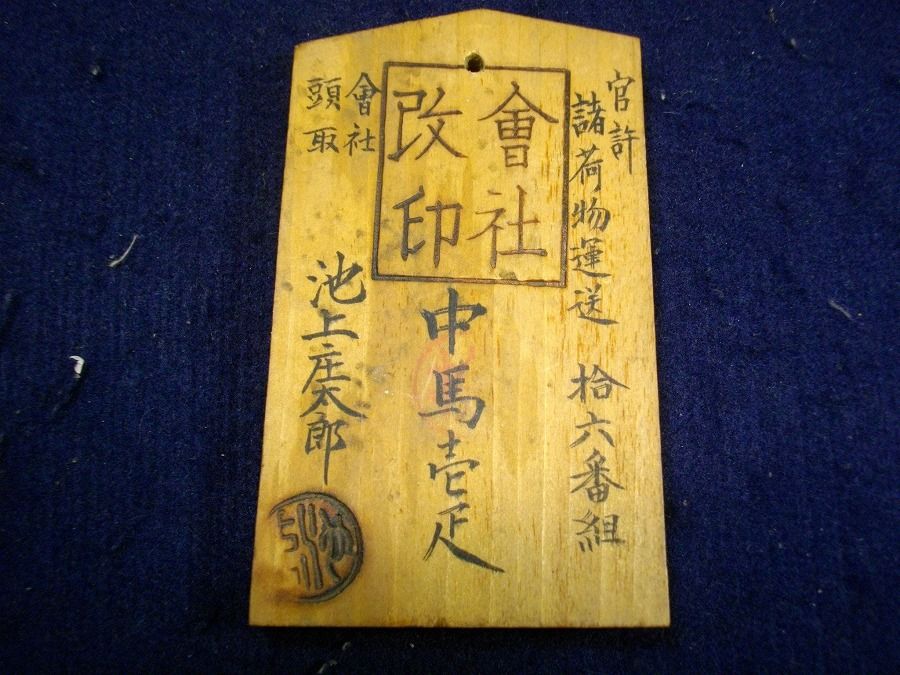 官許
諸荷物運送 拾六番組
會社
改印
中馬壱疋
會社
頭取
池上庄太郎